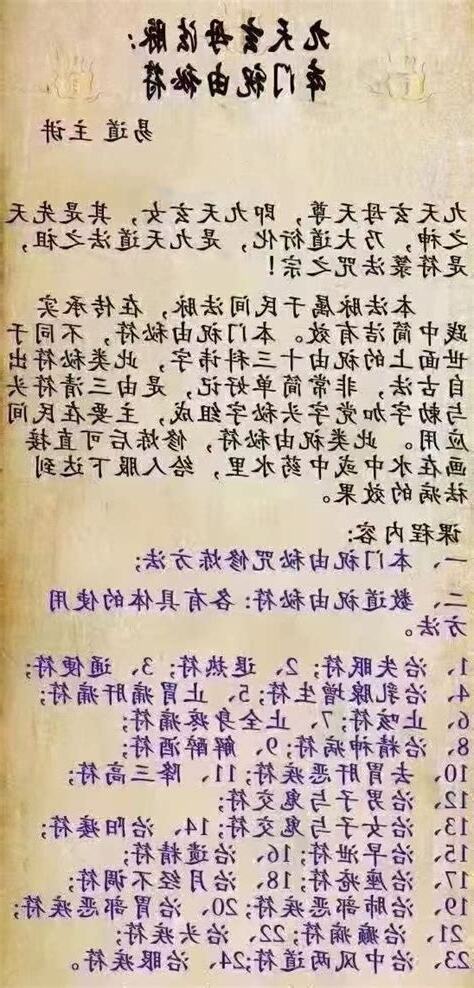 九天玄母法脉：
本门祝由秘符
易道主讲
九天玄母天尊，即九天玄女，其是先天
之神，乃大道衍化，是九天道法之祖，
是符箓法咒之宗！
本法脉属于民间法脉，在传承实
践中简洁有效。本门祝由秘符，不同于
世面上的祝由十三科讳字，此类秘符出
自古法，非常简单好记，是由三清符头
与敕字加党字头秘字组成，主要在民间
应用。此类祝由秘符，修炼后可直接
画在水中或中药水里，给人服下达到
祛病的效果。
课程内容：
一、本门祝由秘咒修炼方法；
二、数道祝由秘符：各有具体的使用
方法。
1、治失眠符；2、退热符；3、通便符；
4、治乳腺增生符；5、止胃痛肝痛符；
6、止咳符；7、止全身疼痛符；
8、治精神病符；9、解醉酒符；
10、去胃肝恶疾符；11、降三高符；
12、治男子与鬼交符；
13、治女子与鬼交符；14、治阳痿符；
15、治早泄符；16、治遗精符；
17、治痤疮符；18、治月经不调符；
19、治肺部恶疾符；20、治胃部恶疾符；
21、治癫痫符；22、治头疾符；
23、治中风两道符；24、治眼疾符。